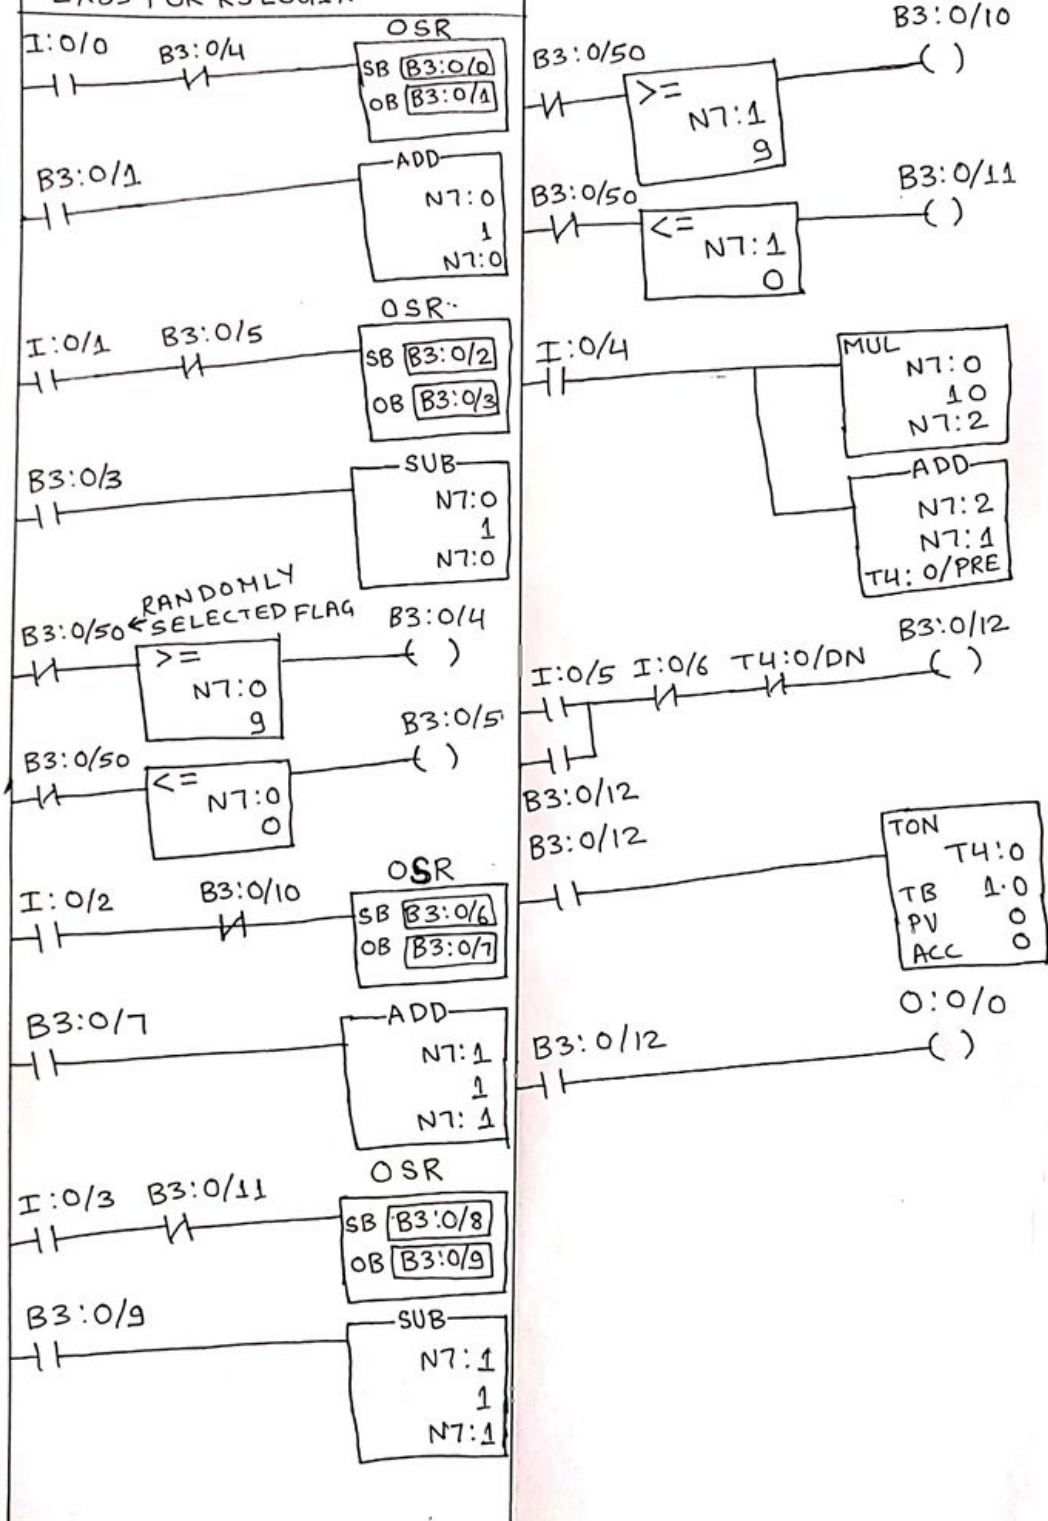 I:0/0
B3:0/4
OSR
SB B3:0/0
OB B3:0/1
B3:0/1
ADD
N7:0
1
N7:0
I:0/1
B3:0/5
OSR
SB B3:0/2
OB B3:0/3
B3:0/3
SUB
N7:0
1
N7:0
RANDOMLY
B3:0/50 ← SELECTED FLAG
B3:0/4
>=
N7:0
9
B3:0/50
B3:0/5
<=
N7:0
0
I:0/2
B3:0/10
OSR
SB B3:0/6
OB B3:0/7
B3:0/7
ADD
N7:1
1
N7:1
I:0/3
B3:0/11
OSR
SB B3:0/8
OB B3:0/9
B3:0/9
SUB
N7:1
1
N7:1
B3:0/10
B3:0/50
>=
N7:1
9
B3:0/11
B3:0/50
<=
N7:1
0
I:0/4
MUL
N7:0
10
N7:2
ADD
N7:2
N7:1
T4:0/PRE
B3:0/12
I:0/5 I:0/6 T4:0/DN
B3:0/12
B3:0/12
TON
T4:0
TB 1.0
PV 0
ACC 0
O:0/0
B3:0/12